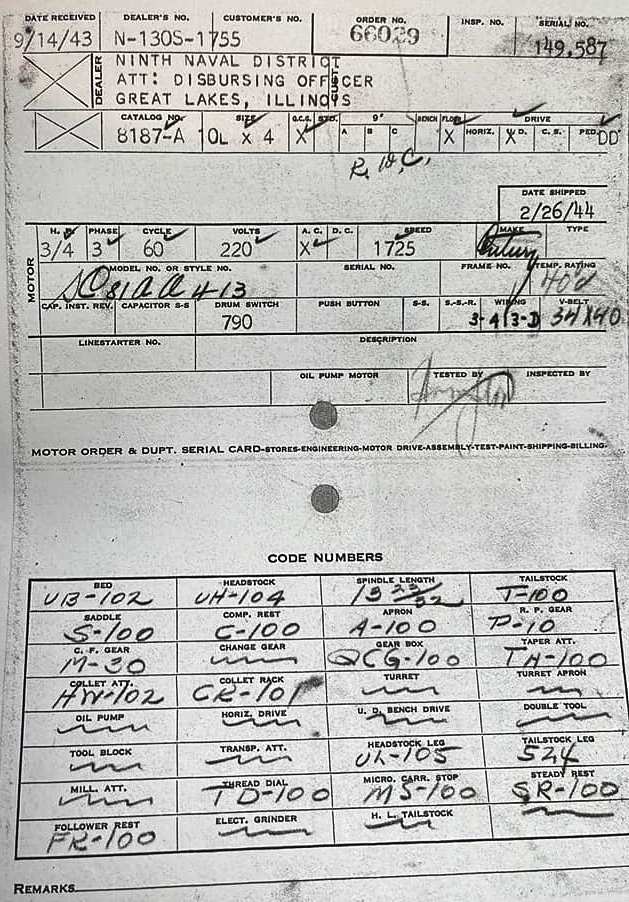 DATE RECEIVED DEALER'S NO. CUSTOMER'S NO. ORDER NO. INSP. NO. SERIAL NO.
9/14/43 N-130S-1755 66029 149,587
DEALER
NINTH NAVAL DISTRICT
ATT: DISBURSING OFFICER
GREAT LAKES, ILLINOIS
CUST.
CATALOG NO. SIZE Q.C.G. STD. 9" BENCH FLOOR DRIVE
8187-A 10L x 4 X A B C X HORIZ. X U.D. C.S. PED. DD
R.H.C.
DATE SHIPPED
2/26/44
MOTOR
H.P. PHASE CYCLE VOLTS A.C. D.C. SPEED MAKE TYPE
3/4 3 60 220 X 1725 Century
MODEL NO. OR STYLE NO. SERIAL NO. FRAME NO. TEMP. RATING
40
CAP. INST. REV. CAPACITOR S-S DRUM SWITCH PUSH BUTTON S-S. S.-S.-R. WIRING V-BELT
790 34X40
LINESTARTER NO. DESCRIPTION
OIL PUMP MOTOR TESTED BY INSPECTED BY
MOTOR ORDER & DUPT. SERIAL CARD-STORES-ENGINEERING-MOTOR DRIVE-ASSEMBLY-TEST-PAINT-SHIPPING-BILLING-
CODE NUMBERS
BED HEADSTOCK SPINDLE LENGTH TAILSTOCK
UB-102 UH-104 13 23/32 T-100
SADDLE COMP. REST APRON R. P. GEAR
S-100 C-100 A-100 P-10
C. F. GEAR CHANGE GEAR GEAR BOX TAPER ATT.
M-30 QCG-100 TA-100
COLLET ATT. COLLET RACK TURRET TURRET APRON
HW-102 CR-101
OIL PUMP HORIZ. DRIVE U. D. BENCH DRIVE DOUBLE TOOL
TOOL BLOCK TRANSP. ATT. HEADSTOCK LEG TAILSTOCK LEG
UL-105 524
MILL. ATT. THREAD DIAL MICRO. CARR. STOP STEADY REST
TD-100 MS-100 SR-100
FOLLOWER REST ELECT. GRINDER H. L. TAILSTOCK
FR-100
REMARKS